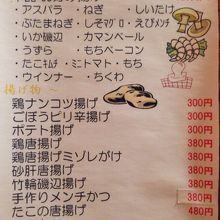 アスパラ・ねぎ・しいたけ
ぶたまねぎ・しそマグロ・えびメンチ
いか磯辺・カマンベール
うずら・もちベーコン
たこキムチ・ミニトマト・もち
ウインナー・ちくわ
揚げ物 ～
鶏ナンコツ揚げ 300円
ごぼうピリ辛揚げ 300円
ポテト揚げ 300円
鶏唐揚げ 380円
鶏唐揚げミゾレがけ 380円
砂肝唐揚げ 380円
竹輪磯辺揚げ 380円
手作りメンチかつ 380円
たこの唐揚げ 480円
480円